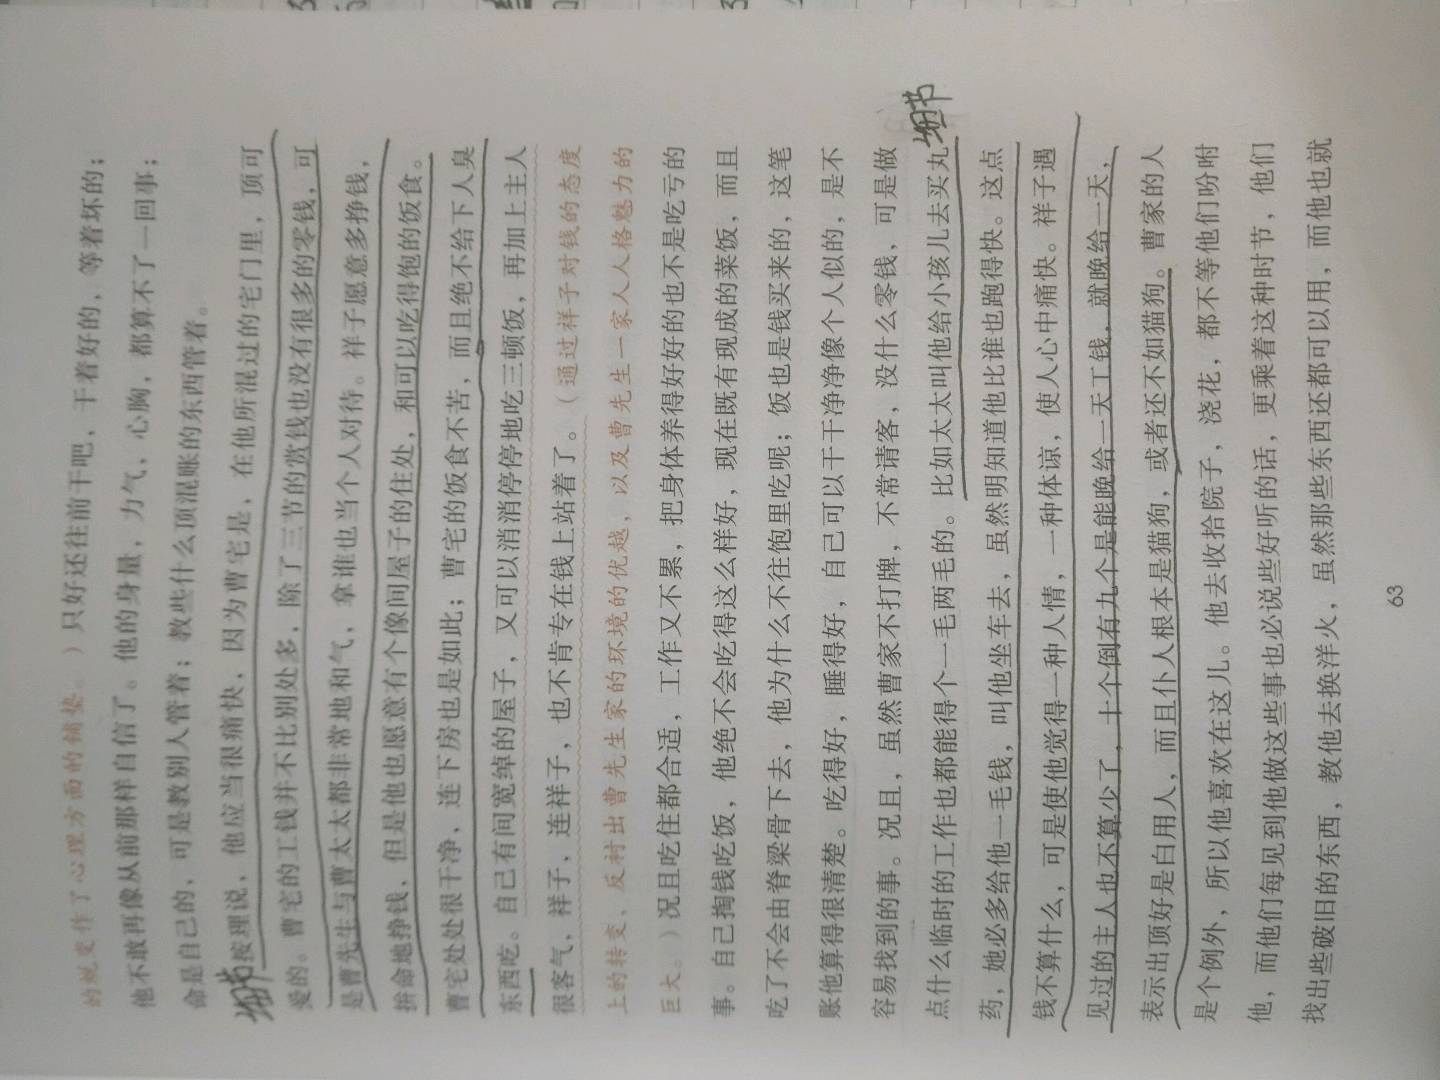 的蜕变作了心理方面的铺垫。）只好还往前干吧，干着好的，等着坏的；
他不敢再像从前那样自信了。他的身量，力气，心胸，都算不了一回事；
命是自己的，可是教别人管着；教些什么顶混账的东西管着。
细节
按理说，他应当很痛快，因为曹宅是，在他所混过的宅门里，顶可
爱的。曹宅的工钱并不比别处多，除了三节的赏钱也没有很多的零钱，可
是曹先生与曹太太都非常地和气，拿谁也当个人对待。祥子愿意多挣钱，
拚命地挣钱，但是他也愿意有个像间屋子的住处，和可以吃得饱的饭食。
曹宅处处很干净，连下房也是如此；曹宅的饭食不苦，而且绝不给下人臭
东西吃。自己有间宽绰的屋子，又可以消消停停地吃三顿饭，再加上主人
很客气，祥子，连祥子，也不肯专在钱上站着了。（通过祥子对钱的态度
上的转变、反衬出曹先生家的环境的优越，以及曹先生一家人人格魅力的
巨大。）况且吃住都合适，工作又不累，把身体养得好好的也不是吃亏的
事。自己掏钱吃饭，他绝不会吃得这么样好，现在既有现成的菜饭，而且
吃了不会由脊梁骨下去，他为什么不往饱里吃呢；饭也是钱买来的，这笔
账他算得很清楚。吃得好，睡得好，自己可以干干净净像个人似的，是不
容易找到的事。况且，虽然曹家不打牌，不常请客，没什么零钱，可是做
点什么临时的工作也都能得个一毛两毛的。比如太太叫他给小孩儿去买丸
细节
药，她必多给他一毛钱，叫他坐车去，虽然明知道他比谁也跑得快。这点
钱不算什么，可是使他觉得一种人情，一种体谅，使人心中痛快。祥子遇
见过的主人也不算少了，十个倒有九个是能晚给一天工钱，就晚给一天，
表示出顶好是白用人，而且仆人根本是猫狗，或者还不如猫狗。曹家的人
是个例外，所以他喜欢在这儿。他去收拾院子，浇花，都不等他们吩咐
他，而他们每见到他做这些事也必说些好听的话，更乘着这种时节，他们
找出些破旧的东西，教他去换洋火，虽然那些东西还都可以用，而他也就
63